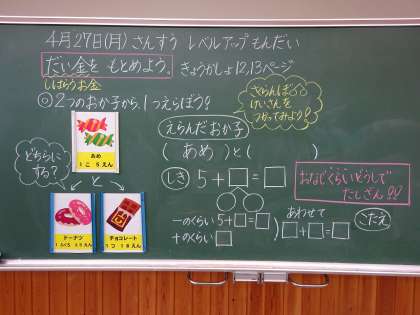 4月27日(月) さんすう レベルアップもんだい
だい金を もとめよう。 きょうかしょ12,13ページ
しはらうお金
◎2つのおか子から、1つえらぼう!!
さくらんぼ
けいさんを
つかってみよう!
えらんだおか子
( あめ )と( )
あめ
1こ 5えん
どちらに
する?
と
ドーナツ
チョコレート
1つ 18えん
しき 5+□=□
おなじくらいどうしで
たしざん!!
一のくらい 5+□=□
十のくらい □
あわせて
□+□=□
こたえ